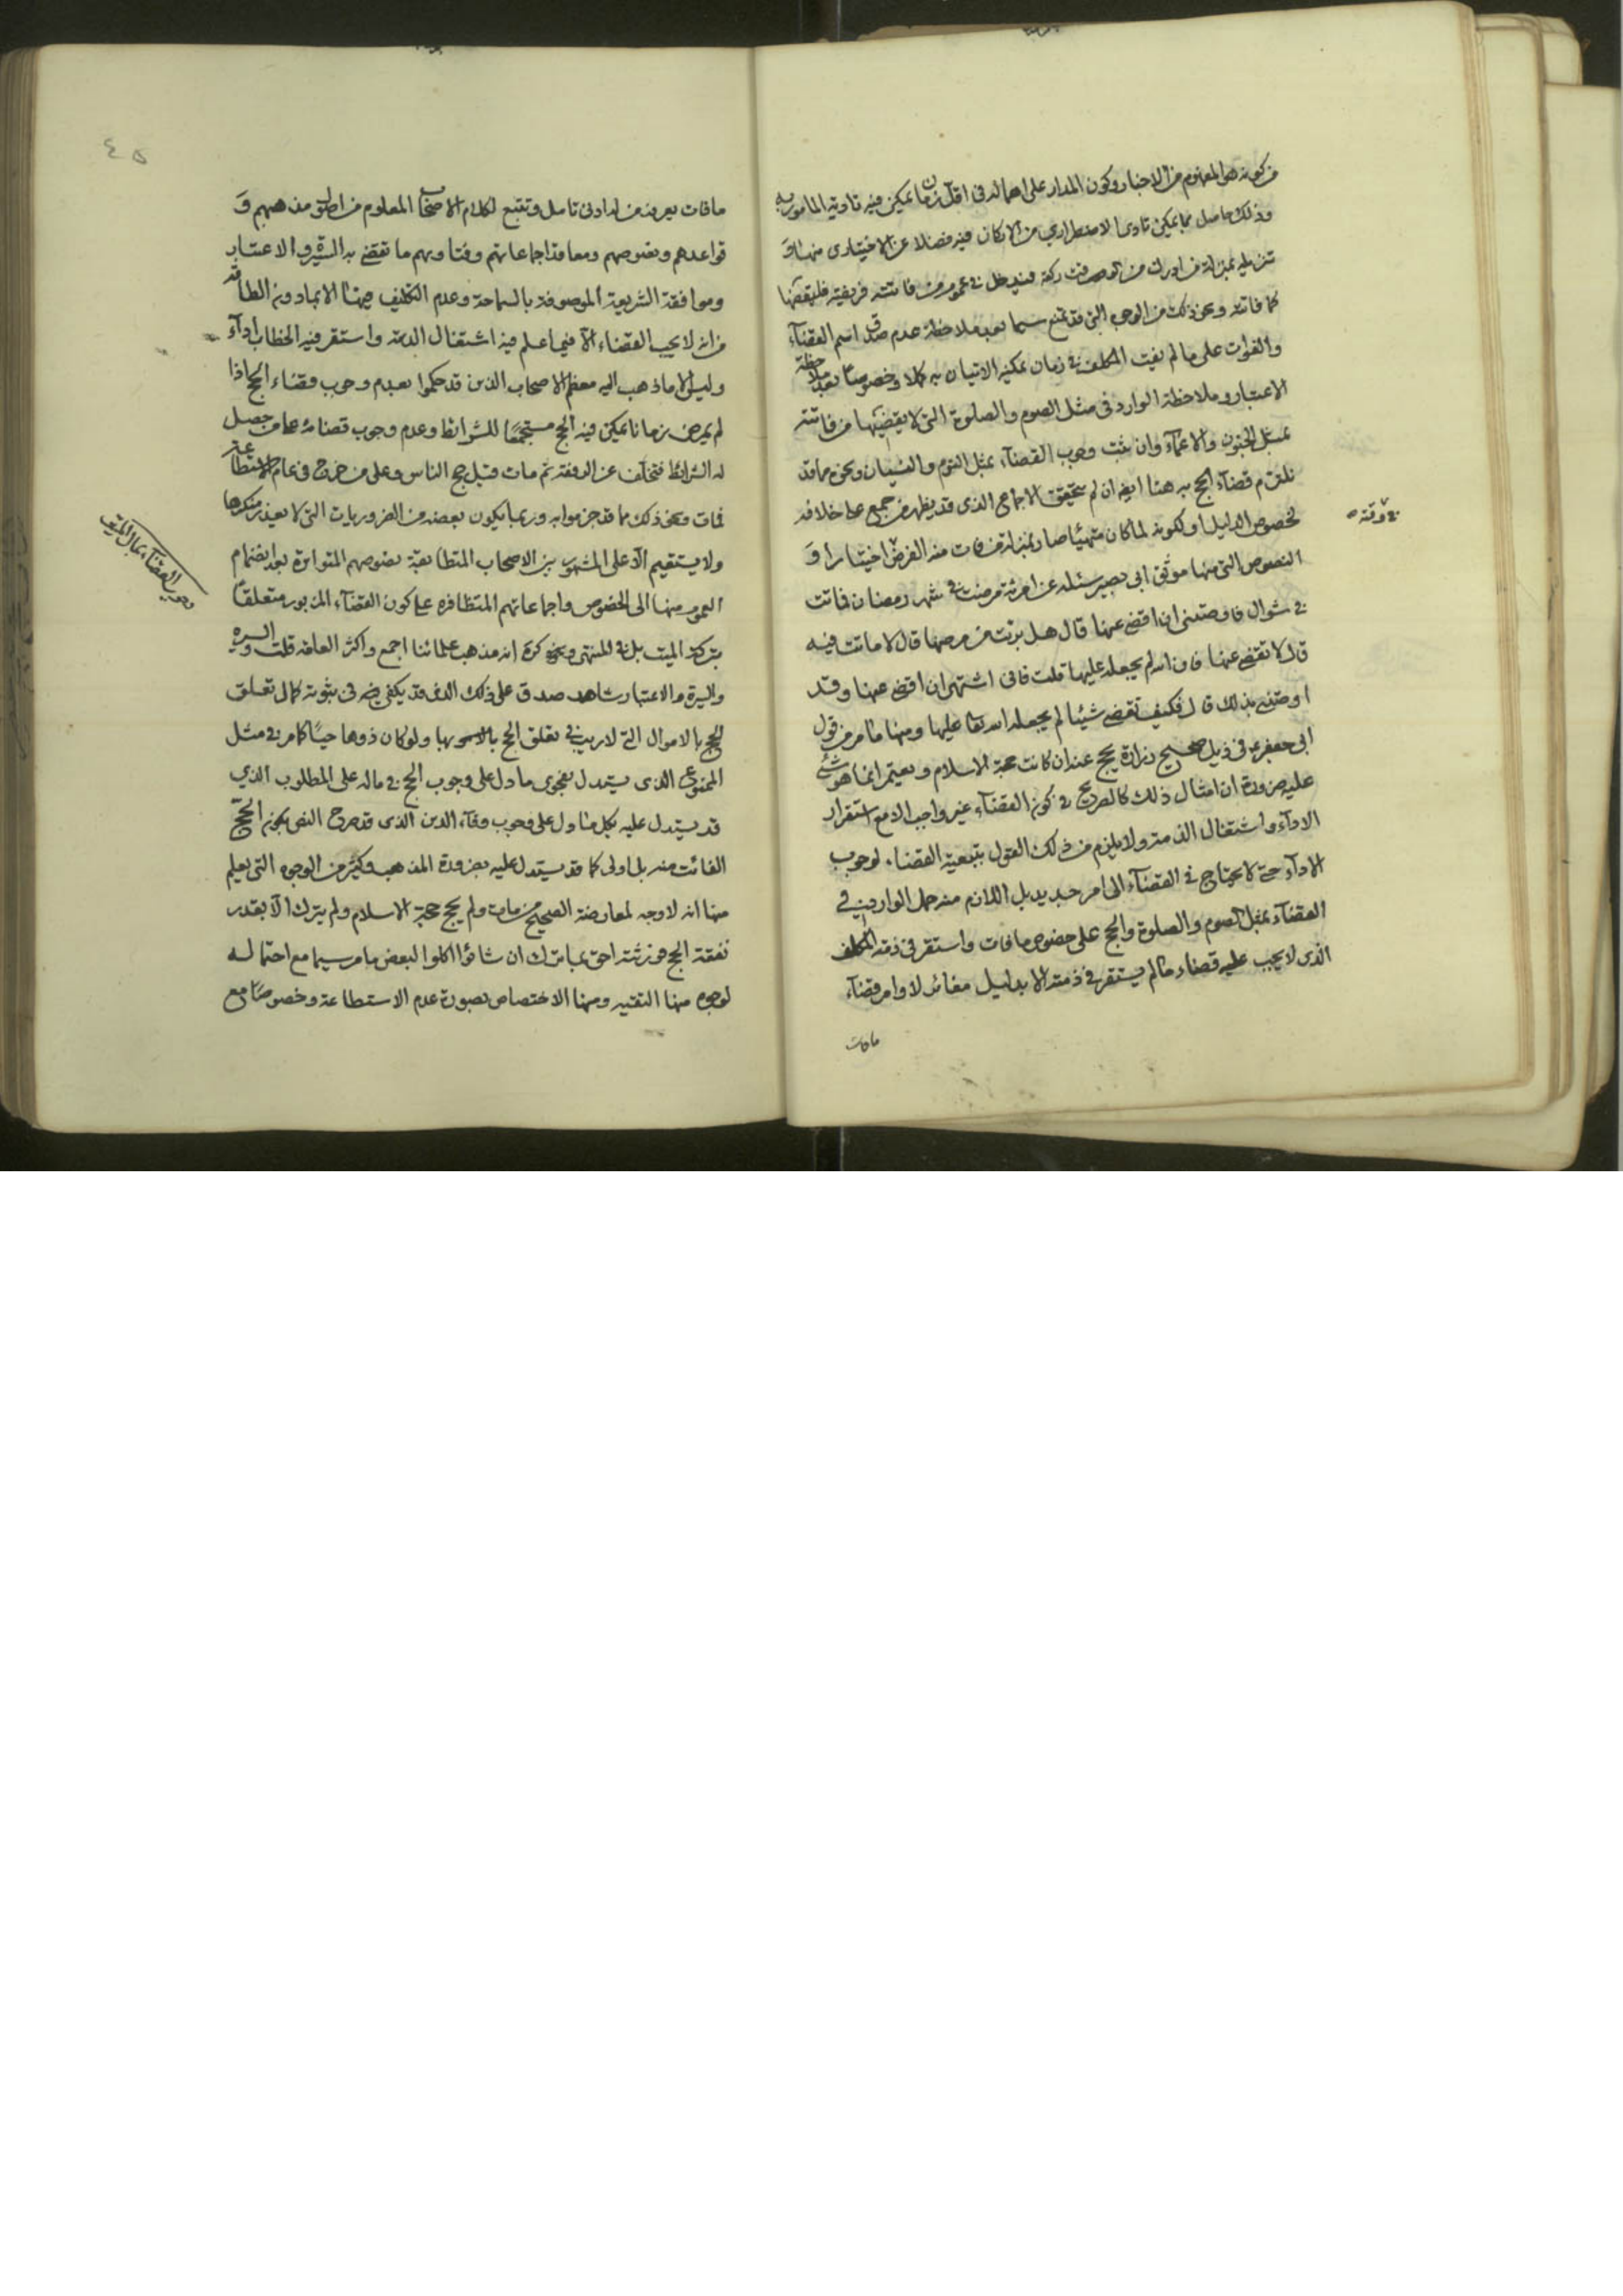 من كونه هو المفهوم من الاخبار وكون المدار على اهماله فى اقل زمان ما يمكن فيه تادية المامور به
وذلك حاصل مما يمكن تادى الاضطراري من الاركان فيه فضلا عن الاختيارى منها و
تنزيله بمنزلة من ادرك من الوقت ركعة فيدخل فى عموم من فاتته فريضة فليقضها
كما فاتته ونحو ذلك من الوجوه التي قد تمنع سيما بعد ملاحظة عدم صدق اسم القضآء
والفوات على ما لم يفت المكلف فى زمان يمكنه الاتيان به كملا وخصوصًا بعد ملاحظة
الاعتبار وملاحظة الوارد فى مثل الصوم والصلوة التى لا يقضيها من فاتته
بمثل الجنون والاغمآء وان ثبت وجوب القضآء بمثل النوم والنسيان ونحوه مما قد
نلتزم قضآء الحج به هنا ايض ان لم يتحقق الاجماع الذى قد يظهر من جمع على خلافه
لخصوص الدليل او لكونه لما كان متهيئا صار بمنزلة من فات منه الفرض اختيارا و
النصوص التى منها موثق ابى بصير سئله عن امرئة مرضت فى شهر رمضان فماتت
فى شوال فاوصتنى ان اقضى عنها قال هل برئت من مرضها قال لا ماتت فيه
قال لا تقضى عنها فان الله لم يجعله عليها قلت فانى اشتهى ان اقضى عنها وقد
اوصتنى بذلك قال فكيف تقضى شيئا لم يجعله الله تعا عليها ومنها ما مر من قول
ابى جعفر ع فى ذيل صحيح زرارة يحج عنه ان كانت حجة الاسلام ويعتمر انما هو شئ
عليه ضرورة ان امثال ذلك كالصريح فى كون القضآء غير واجب الا مع استقرار
الادآء واشتغال الذمة ولا يلزم من ذلك القول بتبعية القضاء لوجوب
الادآء حتى لا يحتاج فى القضآء الى امر جديد بل اللازم منه حمل الوارد فى
القضآء بمثل الصوم والصلوة والحج على خصوص ما فات واستقر فى ذمة المكلف
الذى لا يجب عليه قضاء ما لم يستقر فى ذمته الا بدليل مغائر لاوامر قضآء
مافات
فى وقته
٤٥
مافات يعرفه من له ادنى تامل وتتبع لكلام الاصحاب المعلوم من اصول مذهبهم و
قواعدهم ونصوصهم ومعاقد اجماعاتهم وفتاويهم ما تقضى به السيرة والاعتبار
وموافقة الشريعة الموصوفة بالسماحة وعدم التكليف فيها الا بما دون الطاقة
من انه لا يجب القضاء الا فيما علم فيه اشتغال الذمة واستقر فيه الخطاب ادآء
وليس الا ما ذهب اليه معظم الاصحاب الذين قد حكموا بعدم وجوب قضاء الحج اذا
لم يمض زمانا يمكن فيه الحج مستجمعًا للشرائط وعدم وجوب قضائه على من حصل
له الشرائط فتخلف عن الرفقة ثم مات قبل حج الناس وعلى من خرج فى عام الاستطاعة
فمات ونحو ذلك مما قد جزموا به وربما يكون بعضه من الضروريات التى لا يعذر منكرها
ولا يستقيم الا على المشهور بين الاصحاب المتطابقة نصوصهم المتواترة بعد انضمام
العموم منها الى الخصوص واجماعاتهم المتظافره على كون القضآء المزبور متعلقًا
بتركة الميت بل فى المنتهى وعن كرة انه مذهب علمائنا اجمع واكثر العامة قلت
والسيرة والاعتبار شاهد صدق على ذلك الذى قد يكفى فى ثبوته كمال تعلق
الحج بالاموال التى لا ريب فى تعلق الحج بها ولو كان ذوها حيًا كما مر فى مثل
الممنوع الذى يستدل بفحوى ما دل على وجوب الحج فى ماله على المطلوب الذي
قد يستدل عليه بكل ما دل على وجوب وفآء الدين الذى قد صرح النص بكون الحج
الفائت منه بل اولى كما قد يستدل عليه بضرورة المذهب وكثير من الوجوه التى يعلم
منها انه لا وجه لمعارضة الصحيح من مات ولم يحج حجة الاسلام ولم يترك الا بقدر
نفقة الحج فورثته احق بما ترك ان شاؤا اكلوا لبعض ما مر سيما مع احتماله
لوجوه منها التقيه ومنها الاختصاص بصورة عدم الاستطاعة وخصوصًا مع
القضآء بمال الميت